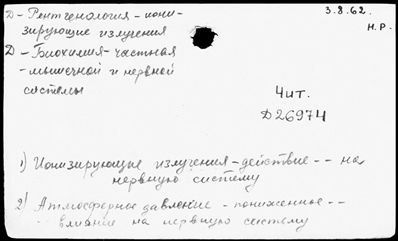 Д - Рентгенология - иони-
зирующие излучения
3.8.62.
Н.Р.
Д - Биохимия - частная
- мышечной и нервной
системы
Чит.
Д26974
1) Ионизирующие излучения - действие -- на
нервную систему
2) Атмосферное давление - пониженное --
влияние на нервную систему